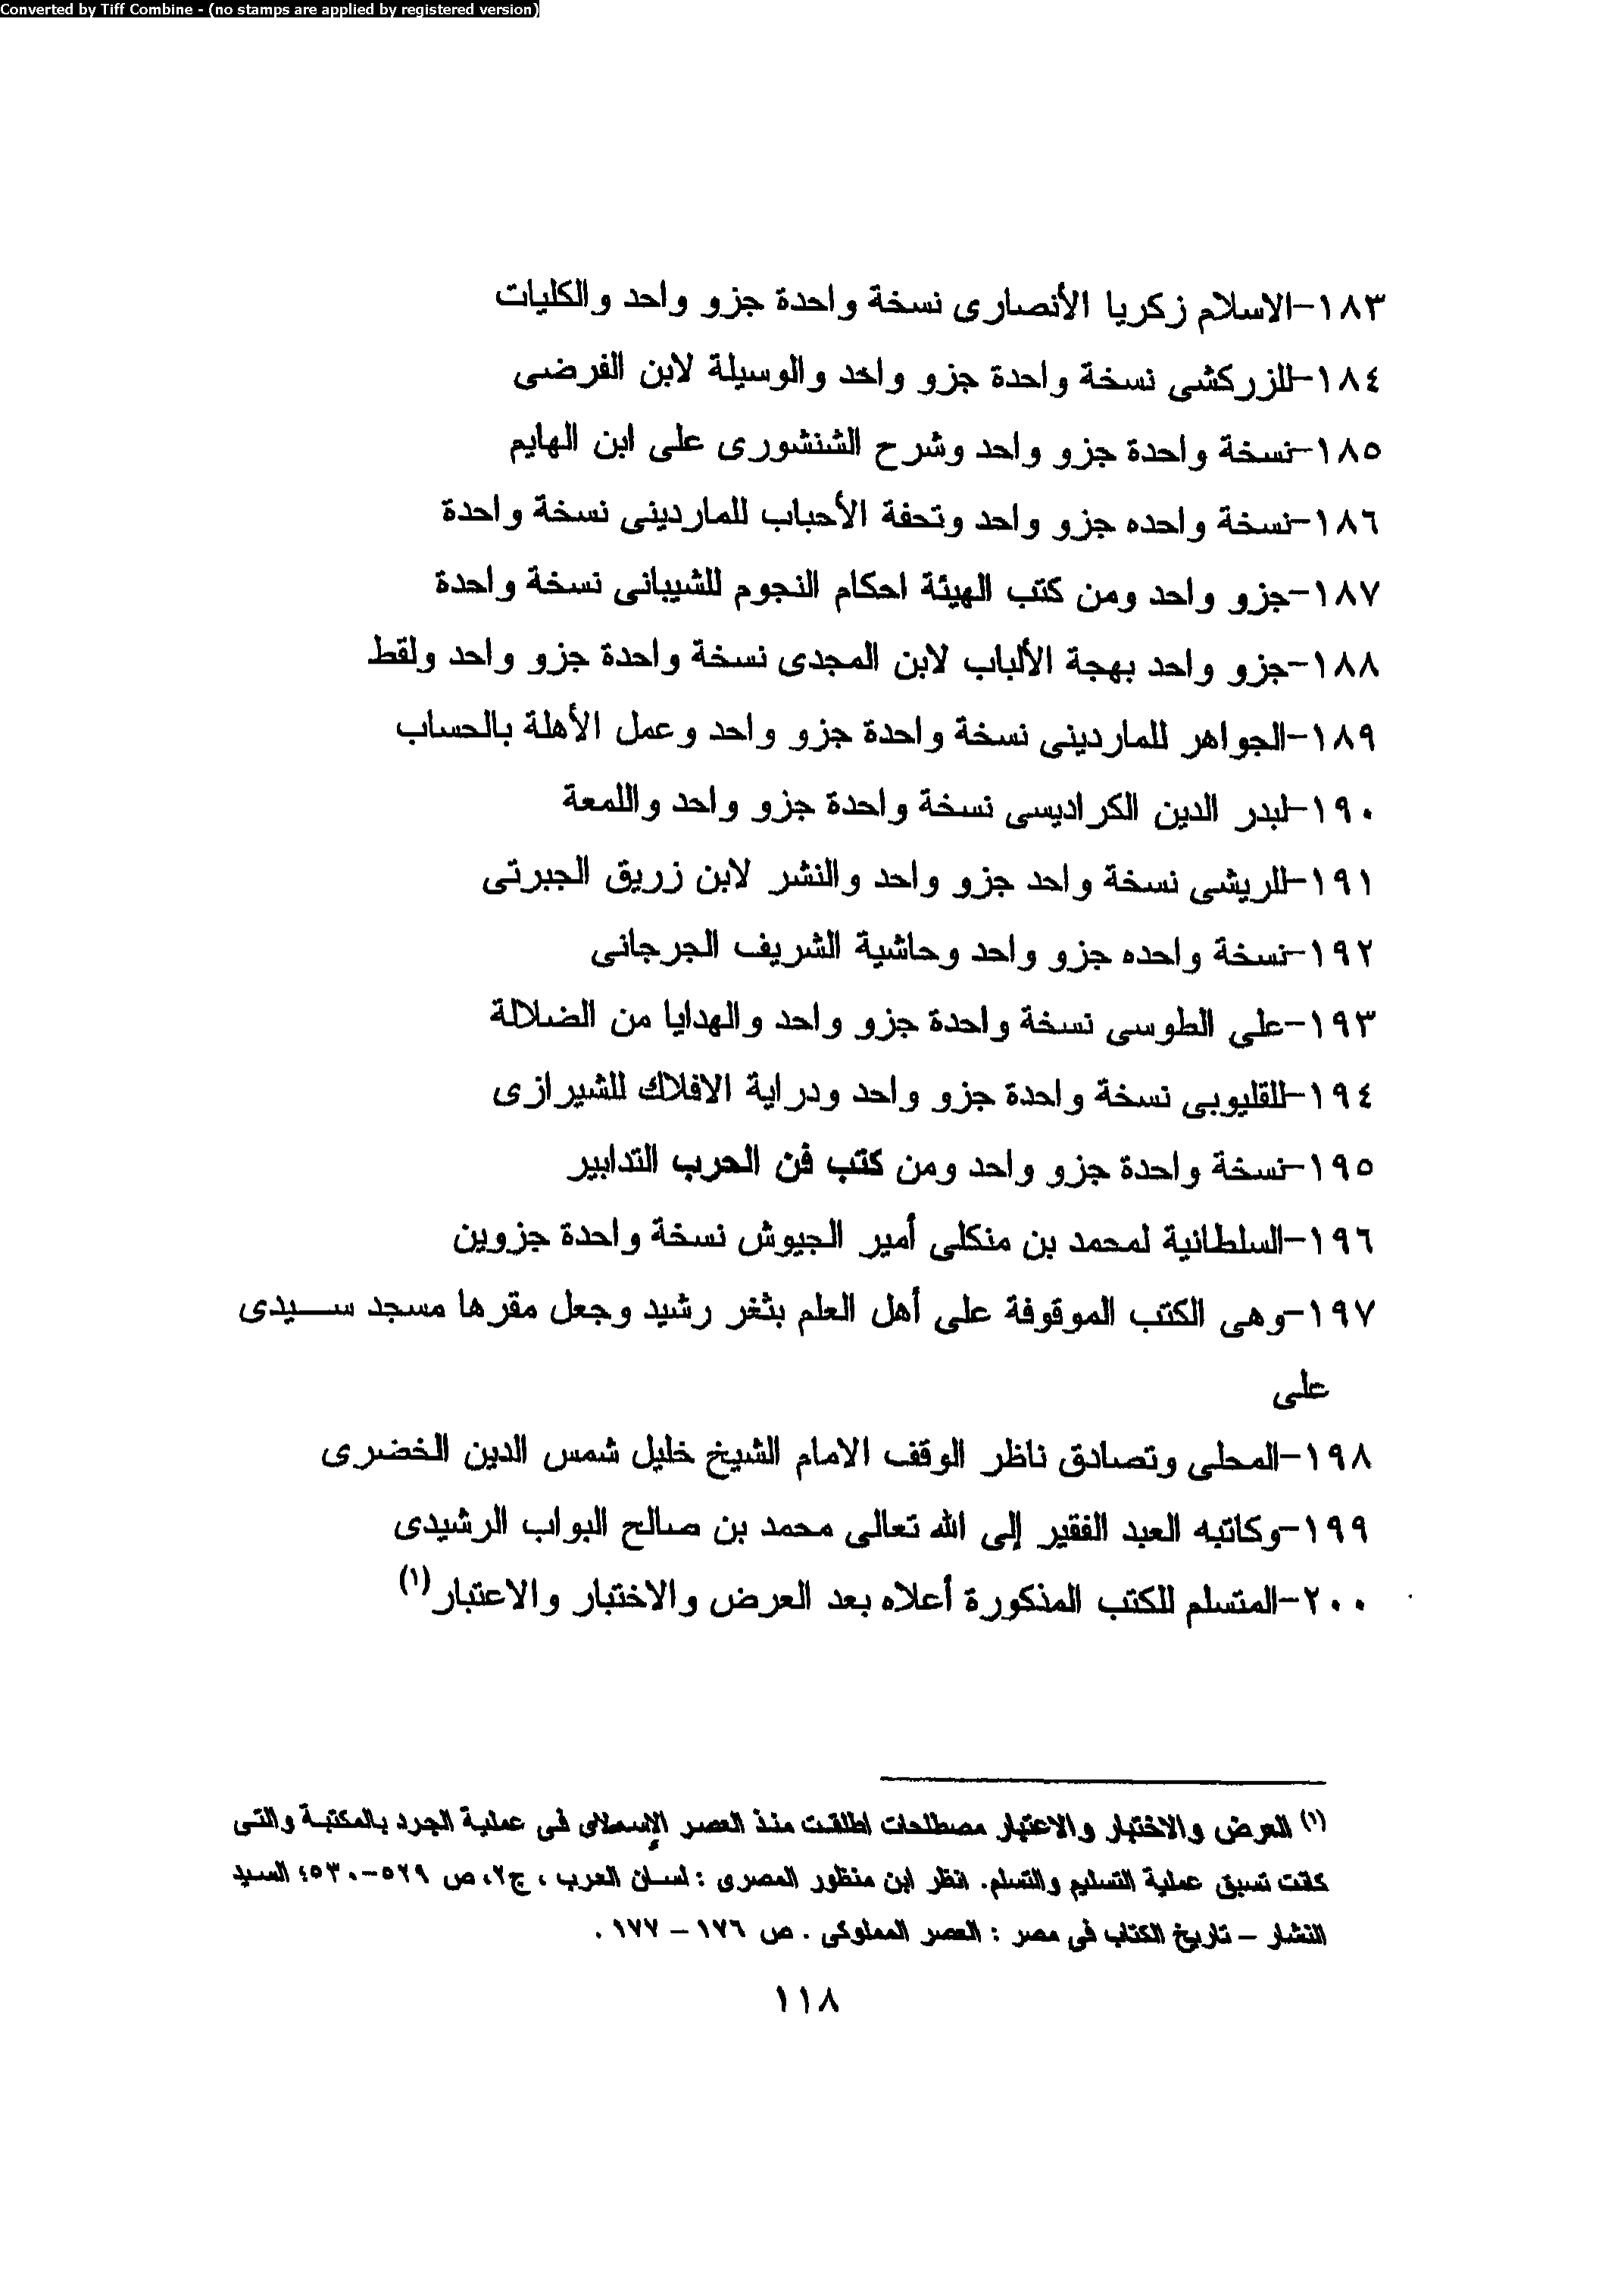 Converted by Tiff Combine - (no stamps are applied by registered version)
١٨٣-الاسلام زكريا الأنصارى نسخة واحدة جزو واحد والكليات
١٨٤-للزركشى نسخة واحدة جزو واخد والوسيلة لابن الفرضى
١٨٥-نسخة واحدة جزو واحد وشرح الشنشورى على ابن الهايم
١٨٦-نسخة واحده جزو واحد وتحفة الأحباب للماردينى نسخة واحدة
١٨٧-جزو واحد ومن كتب الهيئة احكام النجوم للشيبانى نسخة واحدة
١٨٨-جزو واحد بهجة الألباب لابن المجدى نسخة واحدة جزو واحد ولقط
١٨٩-الجواهر للماردينى نسخة واحدة جزو واحد وعمل الأهلة بالحساب
١٩٠-لبدر الدين الكراديسى نسخة واحدة جزو واحد واللمعة
١٩١-للريشى نسخة واحد جزو واحد والنشر لابن زريق الجبرتى
١٩٢-نسخة واحده جزو واحد وحاشية الشريف الجرجانى
١٩٣-على الطوسى نسخة واحدة جزو واحد والهدايا من الضلالة
١٩٤-للقليوبى نسخة واحدة جزو واحد ودراية الافلاك للشيرازى
١٩٥-نسخة واحدة جزو واحد ومن كتب فن الحرب التدابير
١٩٦-السلطانية لمحمد بن منكلى أمير الجيوش نسخة واحدة جزوين
١٩٧-وهى الكتب الموقوفة على أهل العلم بثغر رشيد وجعل مقرها مسجد ســيدى
على
١٩٨-المحلى وتصادق ناظر الوقف الامام الشيخ خليل شمس الدين الخضرى
١٩٩-وكاتبه العبد الفقير إلى الله تعالى محمد بن صالح البواب الرشيدى
٢٠٠-المتسلم للكتب المذكورة أعلاه بعد العرض والاختبار والاعتبار(١)
(١) العرض والاختبار والاعتبار مصطلحات اطلقت منذ العصر الإسلامى فى عملية الجرد بالمكتبة والتى
كانت تسبق عملية التسليم والتسلم. انظر ابن منظور المصرى : لسان العرب ، ج٢، ص ٥٢٩-٥٣٠؛ السيد
النشار – تاريخ الكتاب فى مصر : العصر المملوكى . ص ١٧٦ – ١٧٧ .
١١٨